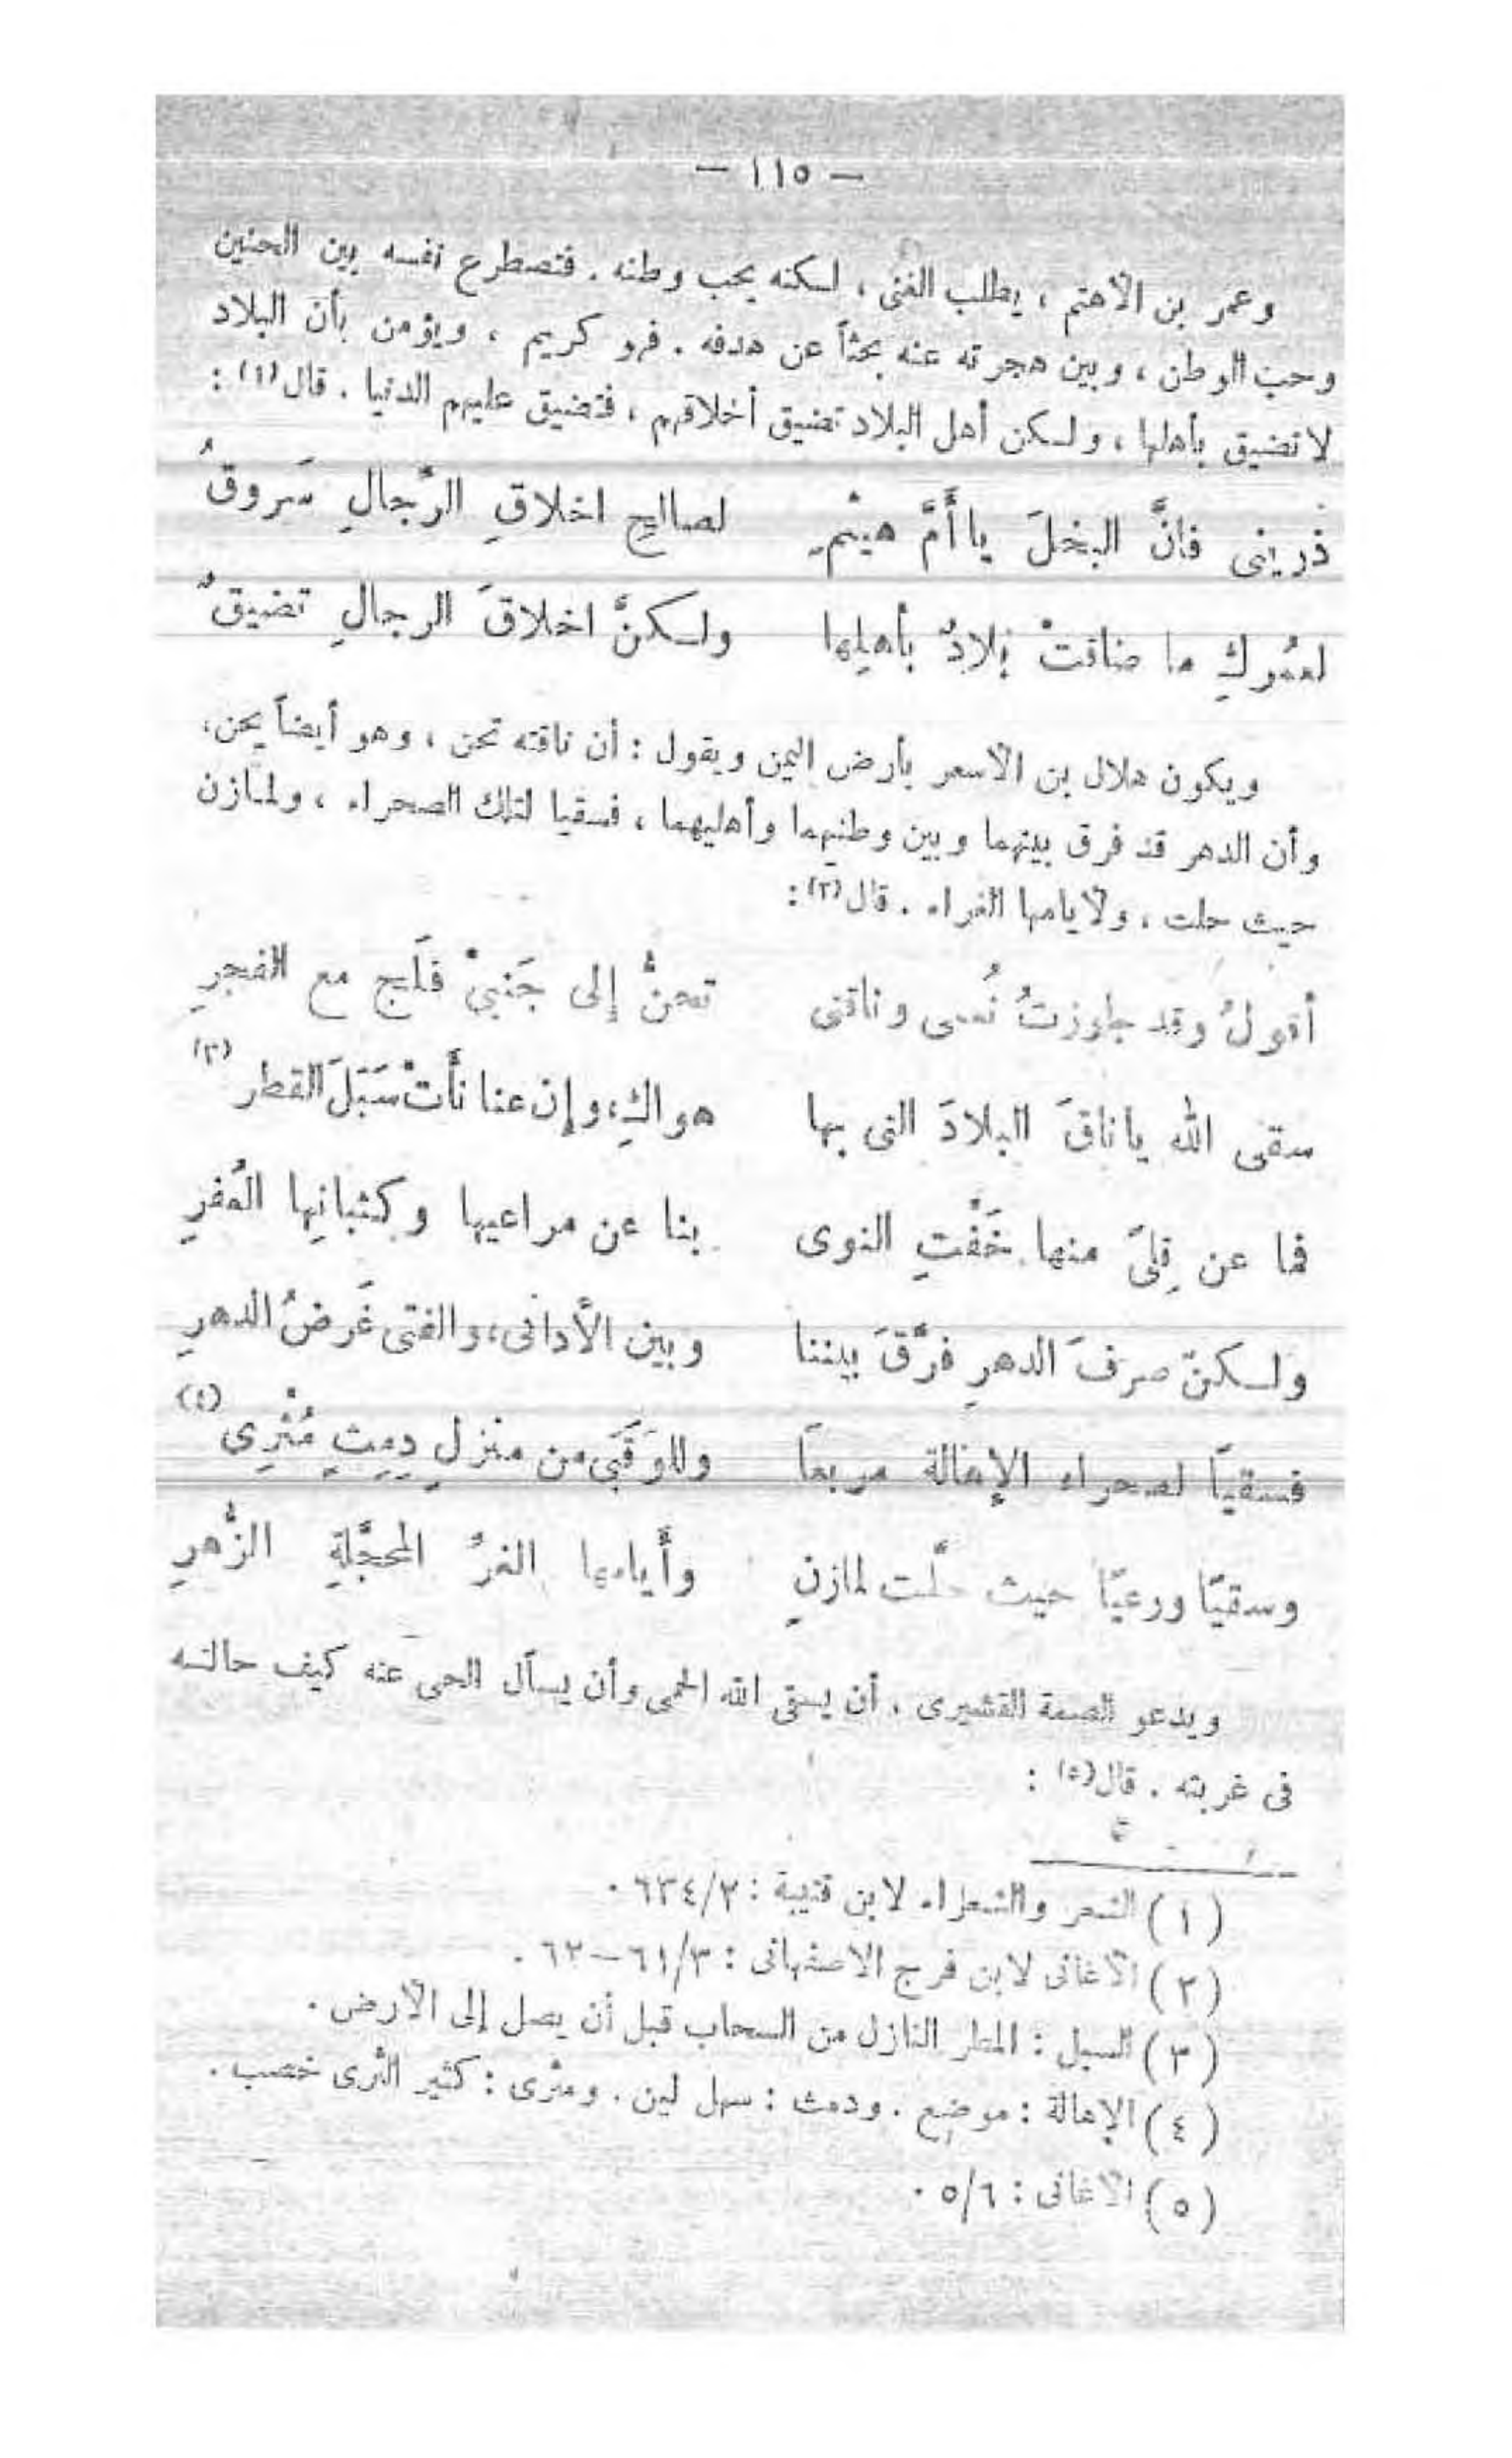 — ١١٥ —
وعمر بن الأهتم ، يطلب الغنى ، لكنه يحب وطنه . فتصطرع نفسه بين الحنين
وحب الوطن ، وبين هجرته عنه بحثاً عن هدفه . فهو كريم ، ويؤمن بأن البلاد
لا تضيق بأهلها ، ولكن أهل البلاد تضيق أخلاقهم ، فتضيق عليهم الدنيا . قال(١) :
ذرينى فانَّ البخلَ يا أُمَّ هيثم لصالحِ اخلاقِ الرِّجالِ سَروقُ
لعمُركِ ما ضاقتْ بلادٌ بأهلِها ولكنَّ اخلاقَ الرجالِ تضيقُ
ويكون هلال بن الأسعر بأرض اليمن ويقول : أن ناقته تحن ، وهو أيضاً يحن،
وأن الدهر قد فرق بينهما وبين وطنيهما وأهليهما ، فسقيا لتلك الصحراء ، ولمازن
حيث حلت ، ولأيامها الغراء . قال(٢) :
أقولُ وقد جاوزتُ نُعمى وناقتى تحنُّ إلى جَنبىْ فَلَيج مع الفجرِ
سقى الله ياناقَ البلادَ التى بها هواكِ، وإن عنا نأتْ سَبَلَ القطر (٣)
فما عن قِلىً منها خَفَّتِ النوى بنا عن مراعيها وكثبانِها العُفرِ
ولكنّ صرفَ الدهرِ فرَّقَ بيننا وبين الأدانى، والفتى غَرضُ الدهرِ
فسقياً لصحراء الإهالة مربعاً وللوَقَبَى من منزلٍ دمِثٍ مُثْرِى (٤)
وسقيًا ورعيًا حيث حلّت لمازنٍ وأيامها الغرُّ المحجَّلةِ الزُّهرِ
ويدعو الصمة القشيرى . أن يسقى الله الحمى وأن يسأل الحى عنه كيف حالته
فى غربته . قال(٥) :
(١) الشعر والشعراء لابن قتيبة : ٦٣٤/٢ .
(٢) الأغانى لابن فرج الاصفهانى : ٦١/٣—٦٢ .
(٣) السبل : المطر النازل من السحاب قبل أن يصل إلى الأرض .
(٤) الإهالة : موضع . ودمث : سهل لين . ومثرى : كثير الثرى خصب .
(٥) الأغانى : ٥/٦ .